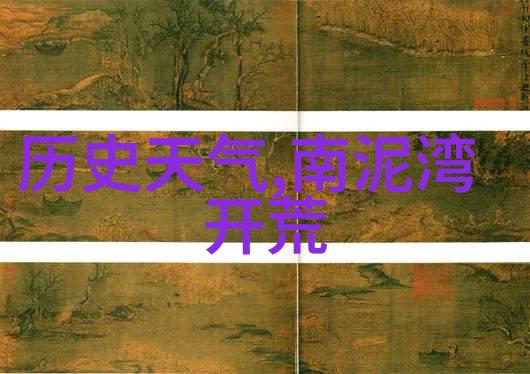 历史天气,南泥湾
开荒